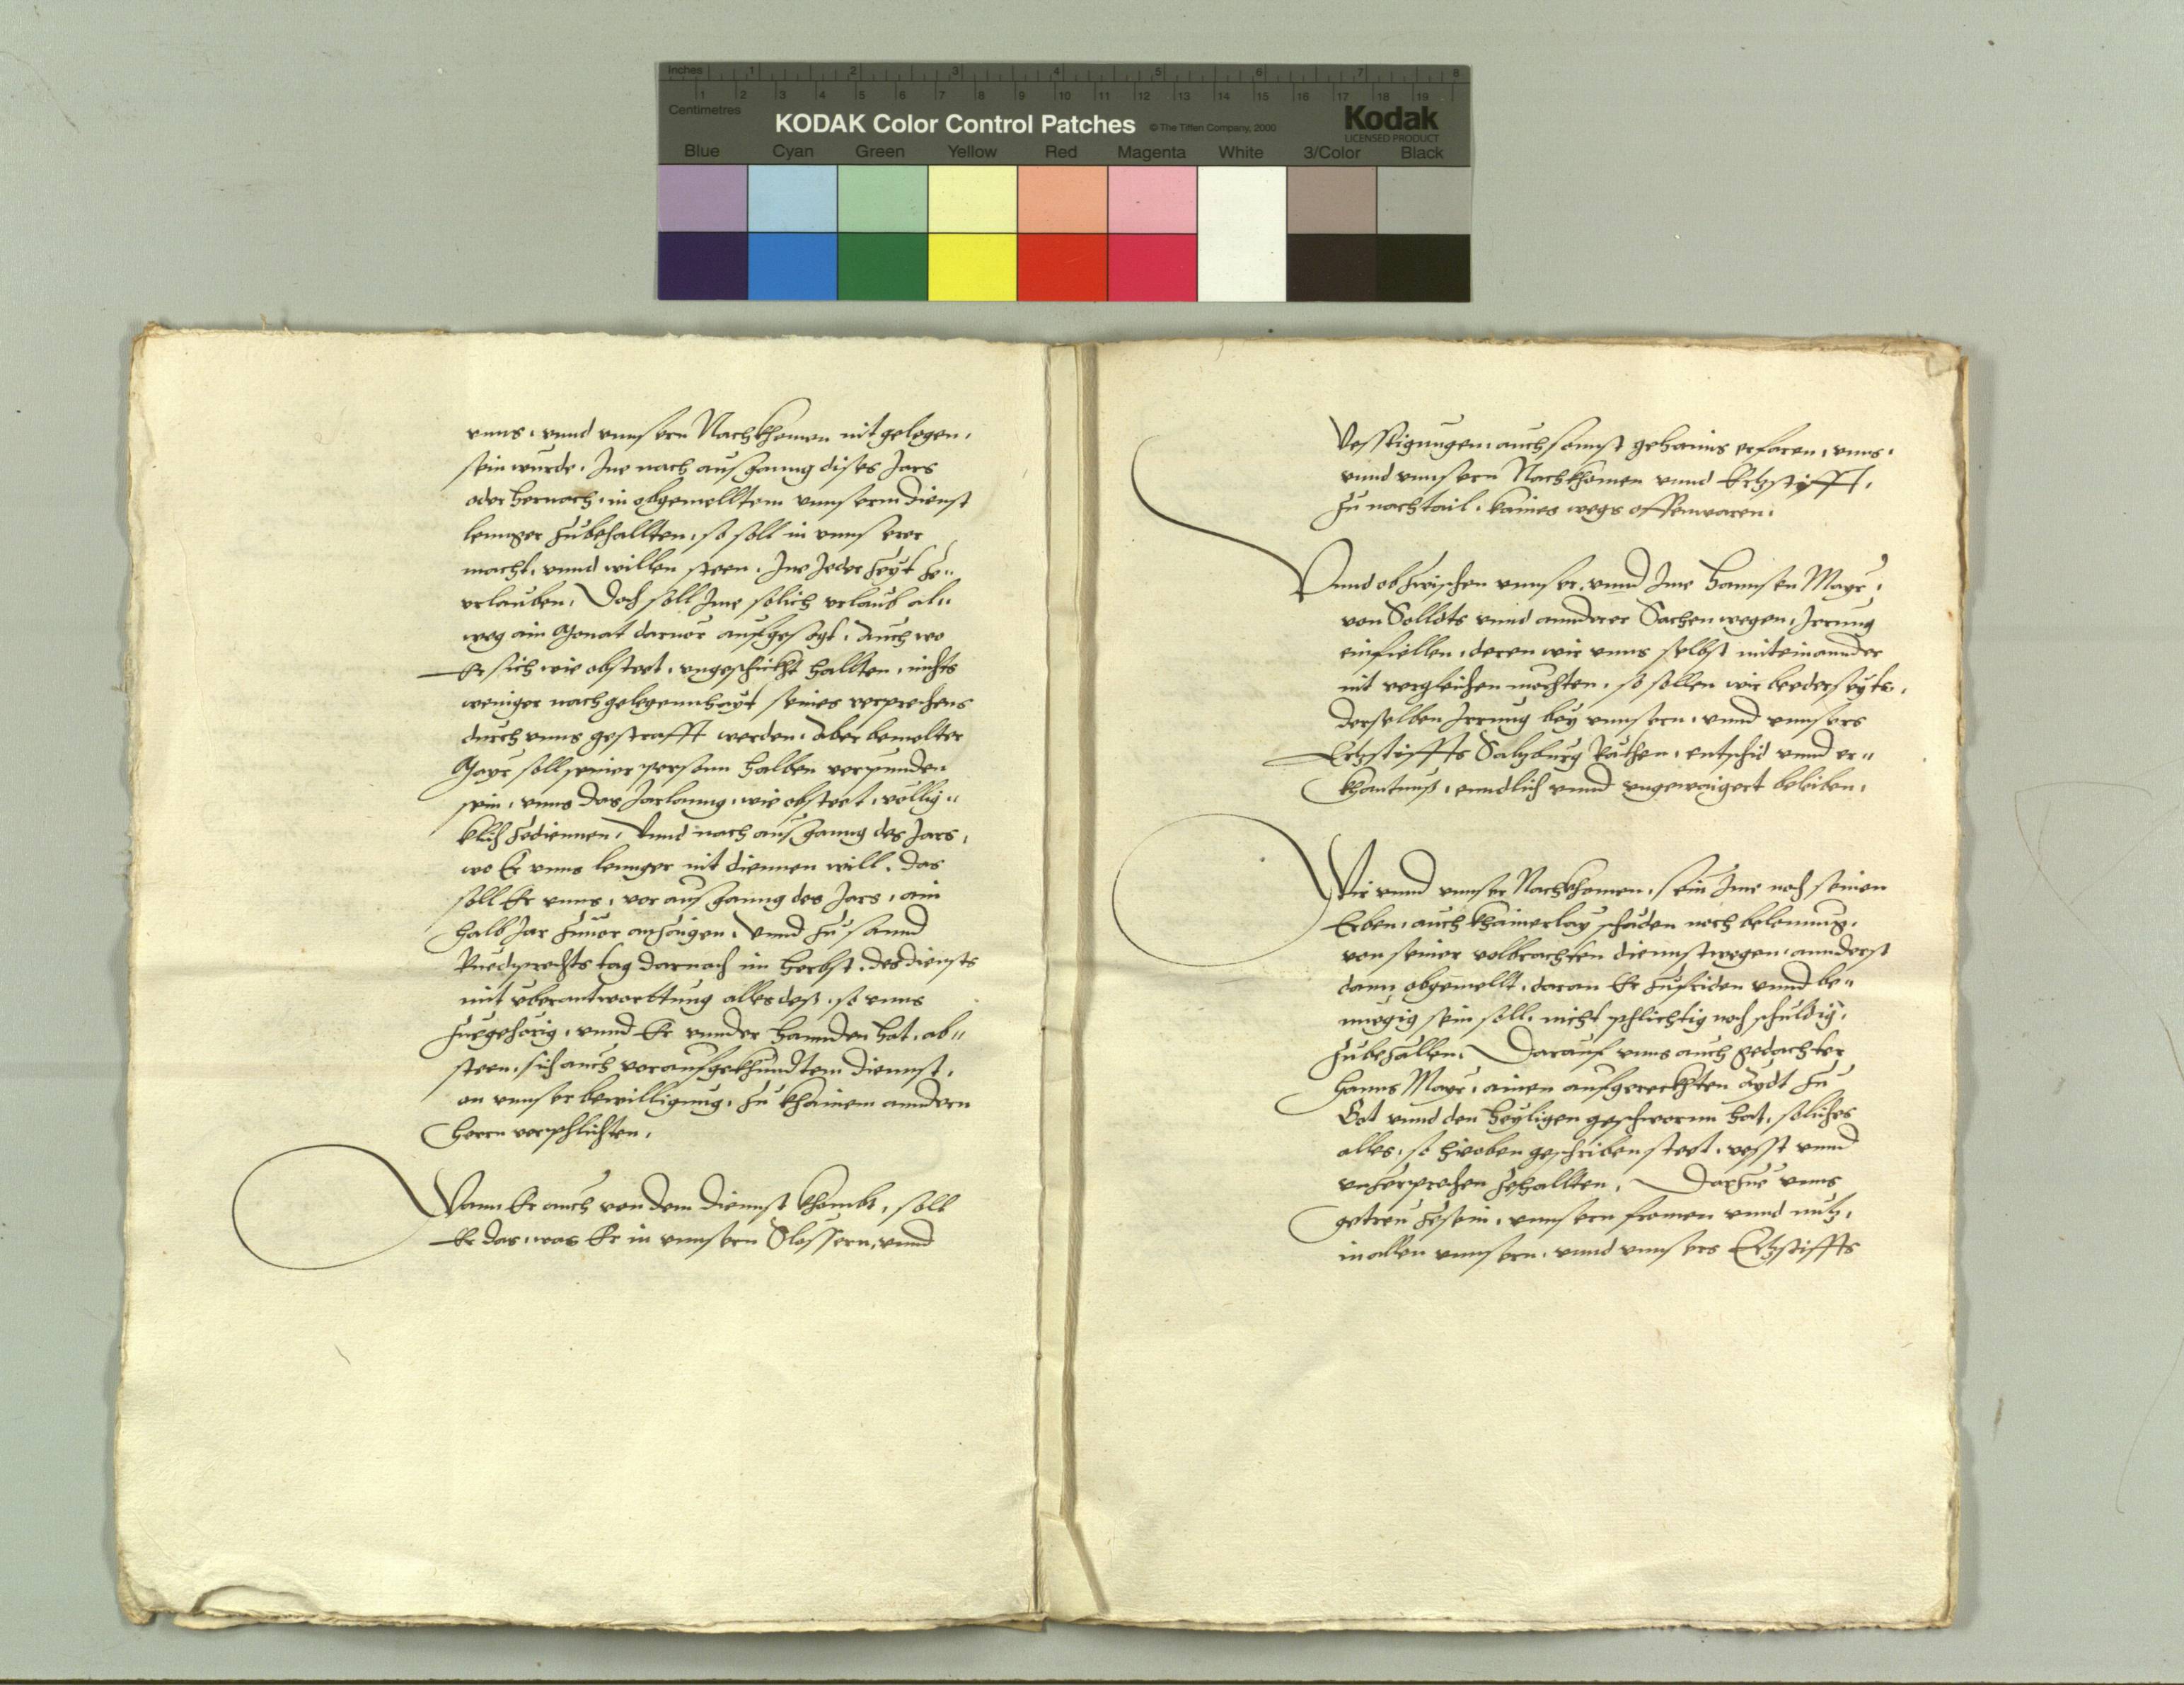 Inches 1 2 3 4 5 6 7 8
1 2 3 4 5 6 7 8 9 10 11 12 13 14 15 16 17 18 19
Centimetres
KODAK Color Control Patches © The Tiffen Company, 2000 Kodak
LICENSED PRODUCT
Blue Cyan Green Yellow Red Magenta White 3/Color Black
vnns, vnnd vnnsern Nachkhomen nit gelegen,
sein wurde, Ine nach ausganng dises Jars
oder hernach, in obgemelltem vnnserm dienst
lennger zubehallten, so soll in vnnserer
macht, vnnd willen steen, Ine Jeder Zeyt ze=
vrlauben, Doch soll Ime solich vrlaub al=
weg ain Monat daruor aufgesagt, Auch wo
Er sich, wie obsteet, vngeschickht hallten, nichts
weniger nach gelegennhayt seines versprechens
durch vnns gestrafft werden, Aber bemelter
Mayr soll seiner person halben verpunden
sein, vnns das Jarlanng, wie obsteet, vollig=
klich zediennen, Vnnd nach ausganng des Jars,
wo Er vnns lennger nit diennen will, das
soll Er vnns, vor ausganng des Jars, ain
halb Jar zuuor anzaigen, Vnnd zu sannd
Ruedprechts tag darnach im herbst, des diensts
mit vberantworttung alles des, so vnns
zuegehörig, vnnd Er vnnder hannden hat, ab=
steen, sich auch vor aufgekhundtem diennst,
on vnnser bewilligung, zu khainem anndern
herrn verphlichten.
Wann Er auch von dem diennst khombt, soll
Er das, was Er in vnnsern Slossern, vnnd
Vesstigungen, auch sonnst gehaims erfaren, vnns,
vnnd vnnsern Nachkhomen vnnd Ertzstifft,
zu nachtail, kaines wegs offenwaren.
Vnnd ob zwischen vnnser, vnnd Ime hannsen Mayr,
von Sollds vnnd annderer Sachen wegen, Irrung
einfiellen, deren wir vnns selbst miteinannder
nit vergleichen mochten, so sollen wir bederseyts,
derselben Irrung bey vnnsern, vnnd vnnsers
Ertzstiffts Saltzburg Räthen, entschid vnnd er=
khantnuß, enndlich vnnd vngewaigert beleiben.
Wir vnnd vnnser Nachkhomen, sein Ime noch seinen
Erben, auch khainerlay schaden noch belonnung,
von seiner volbrachten diennst wegen, annderst
dann obgemellt, daran Er zufriden vnnd be=
nuegig sein soll, nicht phlichtig noch schuldig,
zubezallen. Darauf vnns auch gedachter
Hanns Mayr, ainen aufgereckhten aydt zu
Got vnnd den heyligen geschworn hat, soliches
alles, so hieoben geschriben steet, vesst vnnd
vnzerprochen zehallten, Darzue vnns
getreu zesein, vnnsern fromen vnnd nutz,
in allen vnnsern, vnnd vnnsers Ertzstiffts